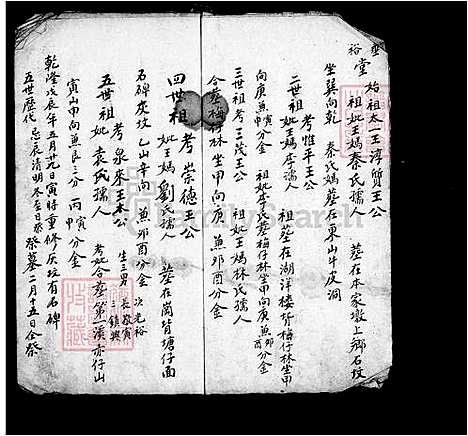 裕堂
始祖太一王淳質王公
祖妣王媽秦氏孺人
墓在本家墩上鄉石墳
坐巽向乾
秦氏媽墓在東山牛皮洞
二世祖
考惟平王公
妣王媽李孺人
祖墓在湖洋樓背梅仔林坐甲
向庚兼申寅分金
祖妣李氏墓梅仔林坐甲向庚兼卯酉分金
三世祖考三茂王公
祖妣王媽林氏孺人
合墓梅仔林坐甲向庚
兼卯酉分金
四世祖
考崇德王公
妣王媽劉孺人
墓在崗背塘仔面
石碑灰墳乙山辛向
兼卯酉分金
五世祖
考泉來王公
妣袁氏孺人
生三男
長敬寅
次光裕
三鎮興
考妣合墓第溪赤仔山
寅山甲向兼艮三分
丙申分金
乾隆戊辰年五月廿九日寅時重修灰墳有石碑
五世歷代
忌辰清明冬至日祭
祭墓二月十五日仝祭
FamilySearch